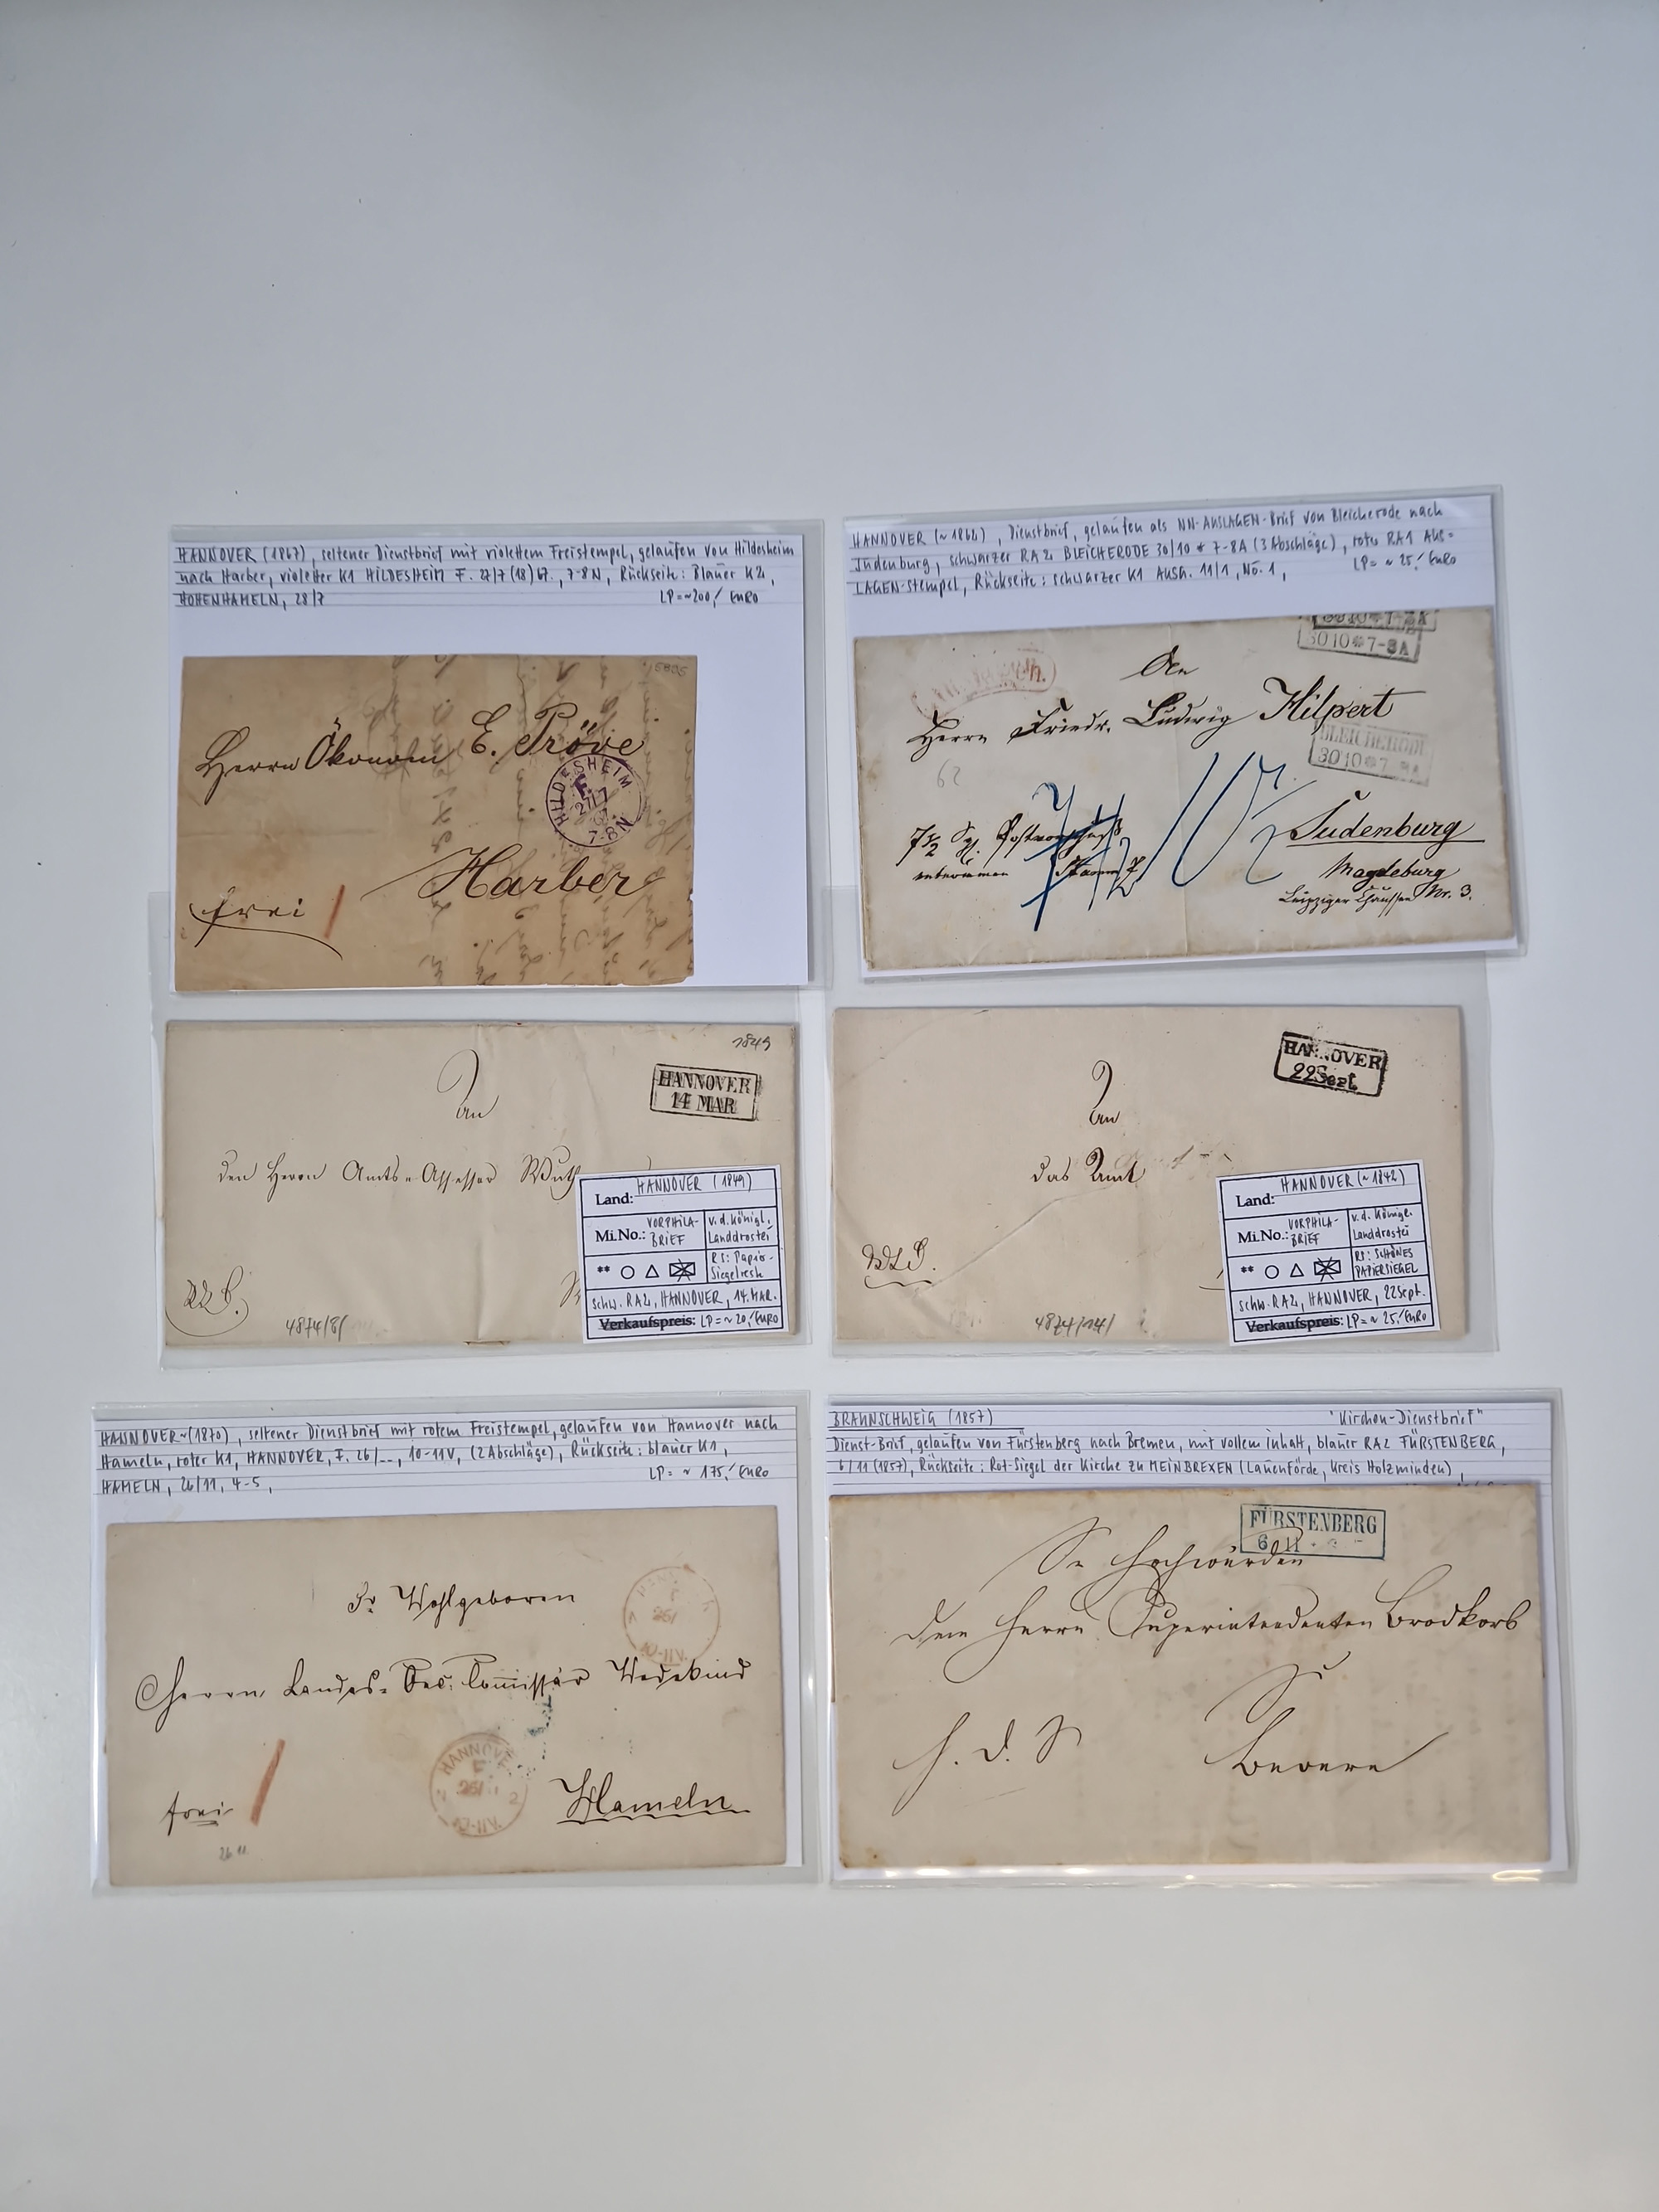 HANNOVER (1867), seltener Dienstbrief mit violettem Freistempel, gelaufen von Hildesheim
nach Harber, violetter K1 HILDESHEIM F. 27/7 (18)67., 7-8N, Rückseite: Blauer K2,
HOHENHAMELN, 28/7 LP=~200,- EURO
Herrn Ökonom E. Pröve
HILDESHEIM
F.
27/7
7-8N
Harber
frei
HANNOVER (~1864), Dienstbrief, gelaufen als NN-AUSLAGEN-Brief von Bleicherode nach
Sudenburg, schwarzer RA2 BLEICHERODE 30/10 * 7-8A (3 Abschläge), roter RA1 AUS=
LAGEN-Stempel, Rückseite: schwarzer K1 AUSG. 11/1, No. 1, LP= ~25,- EURO
30 10 * 7-8A
30 10 * 7-8A
An
Herrn Friedr. Ludwig Hilpert
BLEICHERODE
30 10 * 7-8A
62
7½ Sgr. Postvorschuß
entnommen
Sudenburg
Magdeburg
Leipziger Chaussee Nr. 3.
1849
HANNOVER
14 MAR
An
den Herrn Amts-Assessor
4874/8/
Land: HANNOVER (1849)
Mi.No.: VORPHILA-BRIEF v.d. Königl. Landdrostei
** RS: Papier-Siegelrest
schw. RA2, HANNOVER, 14. MAR.
Verkaufspreis: LP=~20,- EURO
HANNOVER
22 Sept.
An
das Amt
4874/14/
Land: HANNOVER (~1842)
Mi.No.: VORPHILA-BRIEF v.d. Königl. Landdrostei
** RS: SCHÖNES PAPIERSIEGEL
schw. RA2, HANNOVER, 22 Sept.
Verkaufspreis: LP=~25,- EURO
HANNOVER ~(1870), seltener Dienstbrief mit rotem Freistempel, gelaufen von Hannover nach
Hameln, roter K1, HANNOVER, F. 26/__, 10-11V, (2 Abschläge), Rückseite: blauer K1,
HAMELN, 26/11, 4-5, LP= ~175,- EURO
Sr. Wohlgeboren
26/
10-11V.
Herrn Landes-Oec. Commissär Wedekind
HANNOVER
F
26/
10-11V.
2
frei
Hameln
26 11
BRAUNSCHWEIG (1857) "Kirchen-Dienstbrief"
Dienst-Brief, gelaufen von Fürstenberg nach Bremen, mit vollem Inhalt, blauer RA2 FÜRSTENBERG,
6/11 (1857), Rückseite: Rot-Siegel der Kirche zu MEINBREXEN (Lauenförde, Kreis Holzminden),
FÜRSTENBERG
6 11
Sr Hochwürden
dem Herrn Superintendenten Brodkorb
zu
H. d. S
Bevern